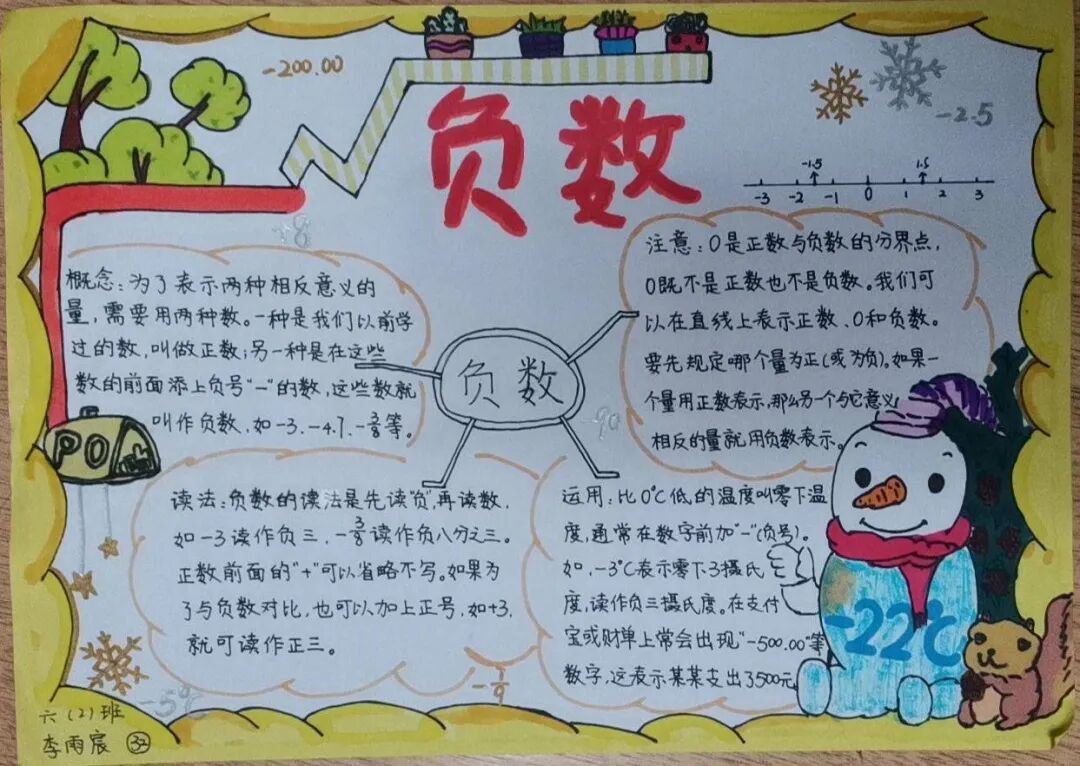 -200.00
负数
-2.5
-1.5 1.5
-3 -2 -1 0 1 2 3
+8
概念：为了表示两种相反意义的
量，需要用两种数。一种是我们以前学
过的数，叫做正数；另一种是在这些
数的前面添上负号“-”的数，这些数就
叫作负数，如-3.-4.7.-3/8等。
注意：0是正数与负数的分界点，
0既不是正数也不是负数。我们可
以在直线上表示正数、0和负数。
要先规定哪个量为正(或为负)。如果一
个量用正数表示，那么另一个与它意义
相反的量就用负数表示。
负数
-90
读法：负数的读法是先读“负”再读数，
如-3读作负三，-3/8读作负八分之三。
正数前面的“+”可以省略不写。如果为
了与负数对比，也可以加上正号，如+3，
就可读作正三。
运用：比0℃低的温度叫零下温
度，通常在数字前加“-”(负号)。
如，-3℃表示零下3摄氏
度，读作负三摄氏度。在支付
宝或财单上常会出现“-500.00”等
数字，这表示某某支出了500元
-22℃
-1/9
-5℃
六(2)班
李雨宸 32